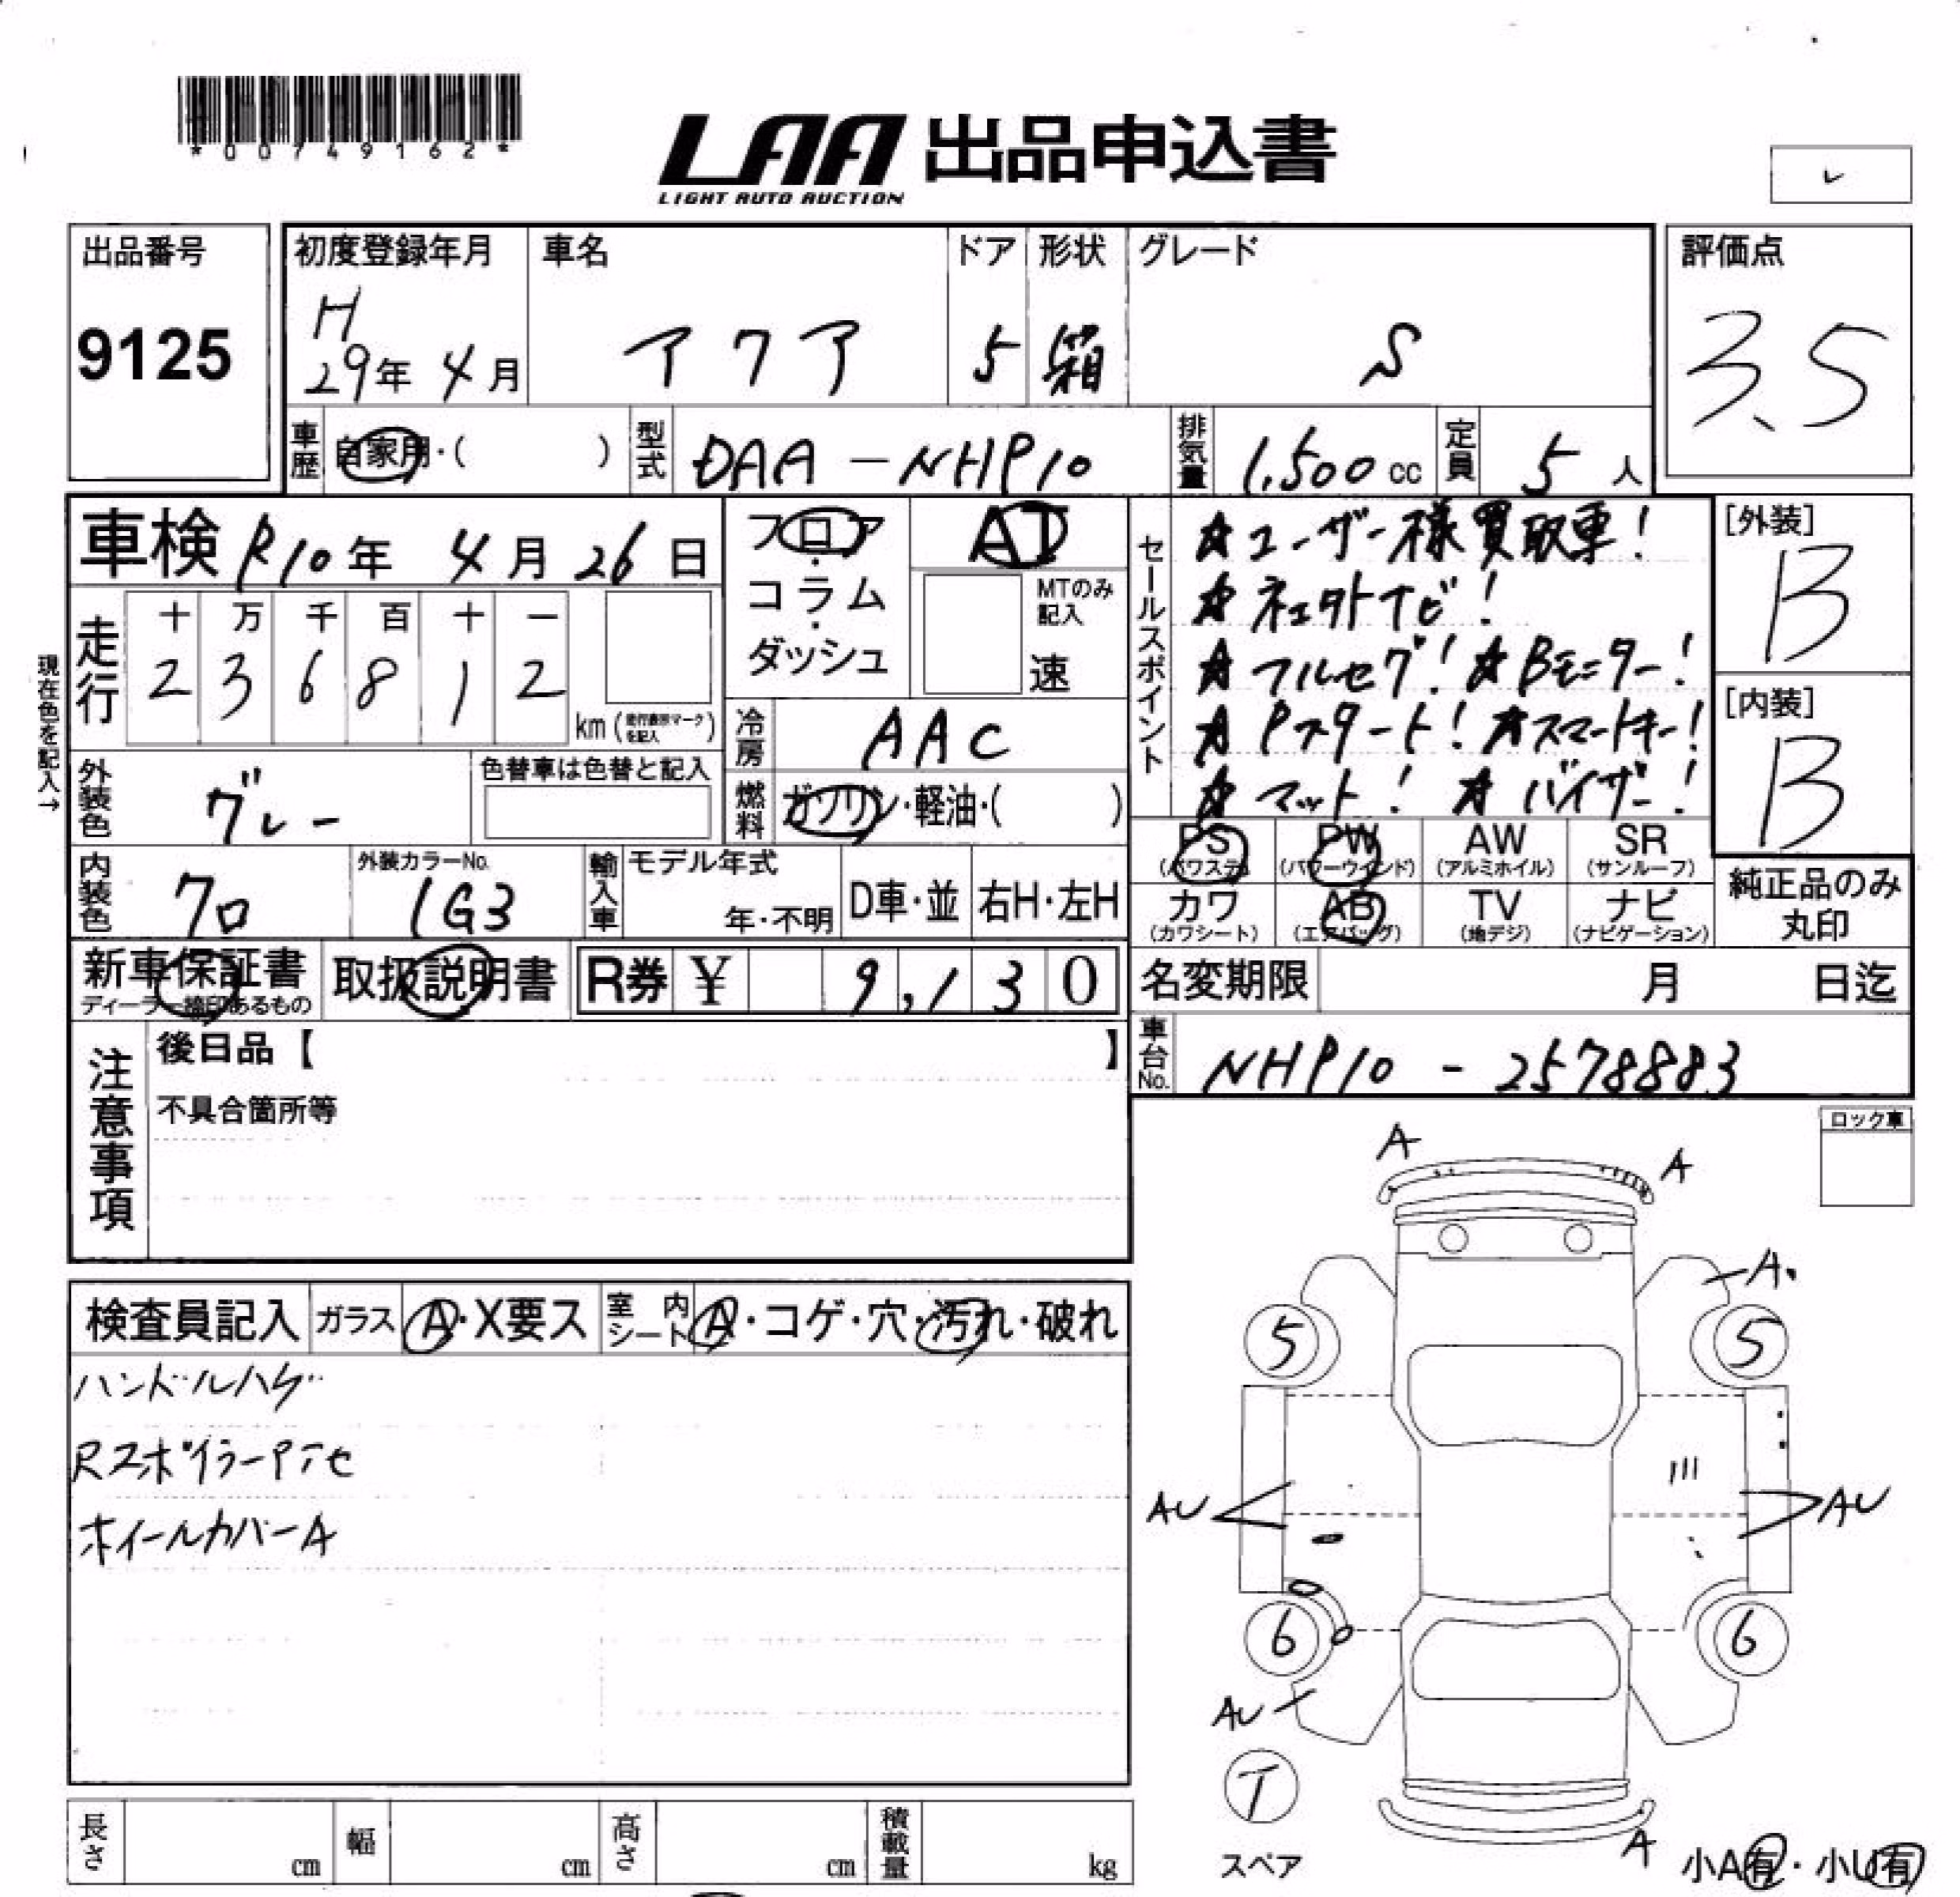 *00749162*
LAA 出品申込書
LIGHT AUTO AUCTION
出品番号
9125
初度登録年月
H
29年 4月
車名
アクア
ドア
5
形状
箱
グレード
S
評価点
3.5
車歴
自家用・( )
型式
DAA-NHP10
排気量
1,500cc
定員
5人
車検 R10年 4月 26日
フロア
・
コラム
・
ダッシュ
AT
MTのみ
記入
速
走行
十 万 千 百 十 一
2 3 6 8 1 2
km (走行表示マークを記入)
現在色を記入→
冷房
AAC
外装色
グレー
色替車は色替と記入
燃料
ガソリン・軽油・( )
内装色
クロ
外装カラーNo.
1G3
輸入車
モデル年式
年・不明
D車・並
右H・左H
新車保証書
ディーラー捺印あるもの
取扱説明書
R券 ¥ 9,130
セールスポイント
☆ユーザー様買取車!
☆ネェクトナビ!
☆フルセグ!☆Bモニター!
☆Pスタート!☆スマートキー!
☆マット!☆バイザー!
[外装]
B
[内装]
B
PS
(パワステ)
PW
(パワーウインド)
AW
(アルミホイル)
SR
(サンルーフ)
カワ
(カワシート)
AB
(エアバッグ)
TV
(地デジ)
ナビ
(ナビゲーション)
純正品のみ
丸印
名変期限 月 日迄
車台No.
NHP10-2578883
注意事項
後日品【 】
不具合箇所等
ロック車
検査員記入
ガラス
A・X要ス
室内
シート
A・コゲ・穴・汚れ・破れ
ハンドルハゲ
Rスポイラーアセ
ホイールカバーA
A
A
A
5
5
AU
AU
6
6
AU
T
スペア
A
小A有・小U有
長さ
cm
幅
cm
高さ
cm
積載量
kg